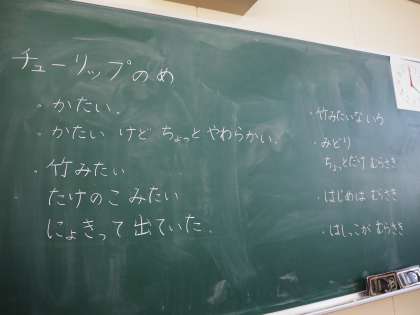 チューリップのめ
・かたい.
・かたい けど ちょっと やわらかい.
・竹みたい
・たけのこ みたい
にょきって 出ていた.
・竹みたいないろ
・みどり
ちょっとだけ むらさき
・はじめは むらさき
・はしっこが むらさき